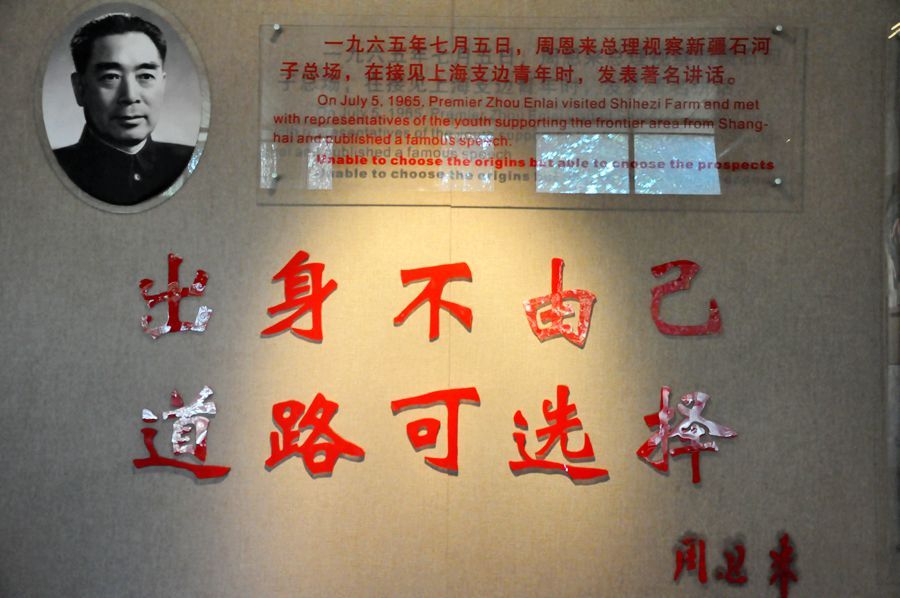 一九六五年七月五日，周恩来总理视察新疆石河
子总场，在接见上海支边青年时，发表著名讲话。
On July 5, 1965, Premier Zhou Enlai visited Shihezi Farm and met
with representatives of the youth supporting the frontier area from Shang-
hai and published a famous speech.
Unable to choose the origins but able to choose the prospects
出身不由己
道路可选择
周恩来